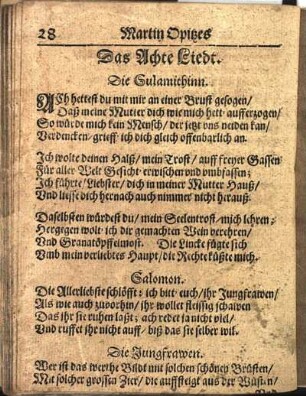 28 Martin Opitzes
Das Achte Liedt.
Die Sulamithinn.
ACh hettest du mit mir an einer Brust gesogen/
Daß meine Mutter dich wie mich hett aufferzogen/
So würde mich kein Mensch/ der jetzt uns neiden kan/
Verdencken/ grieff ich dich gleich offenbarlich an.
Ich wolte deinen Halß/ mein Trost/ auff freyer Gassen
Für aller Welt Gesicht erwischen und umbfassen;
Ich führte/ Liebster/ dich in meiner Mutter Hauß/
Und liesse dich hernach auch nimmer nicht herauß.
Daselbsten würdest du/ mein Seelentrost/ mich lehren:
Hergegen wolt ich dir gemachten Wein verehren/
Und Granatöpffelmost. Die Lincke fügte sich
Umb mein verliebtes Haupt/ die Rechte küßte mich.
Salomon.
Die Allerliebste schläfft; ich bitt euch/ ihr Jungfrawen/
Als wie auch zuvorhin/ ihr wollet fleissig schawen
Das ihr sie ruhen laßt; ach redet ja nicht viel/
Und ruffet ihr nicht auff/ biß das sie selber wil.
Die Jungfrawen.
Wer ist das werthe Bild mit solchen schönen Brüsten/
Mit solcher grossen Zier/ die auffsteigt aus der Wüsten/